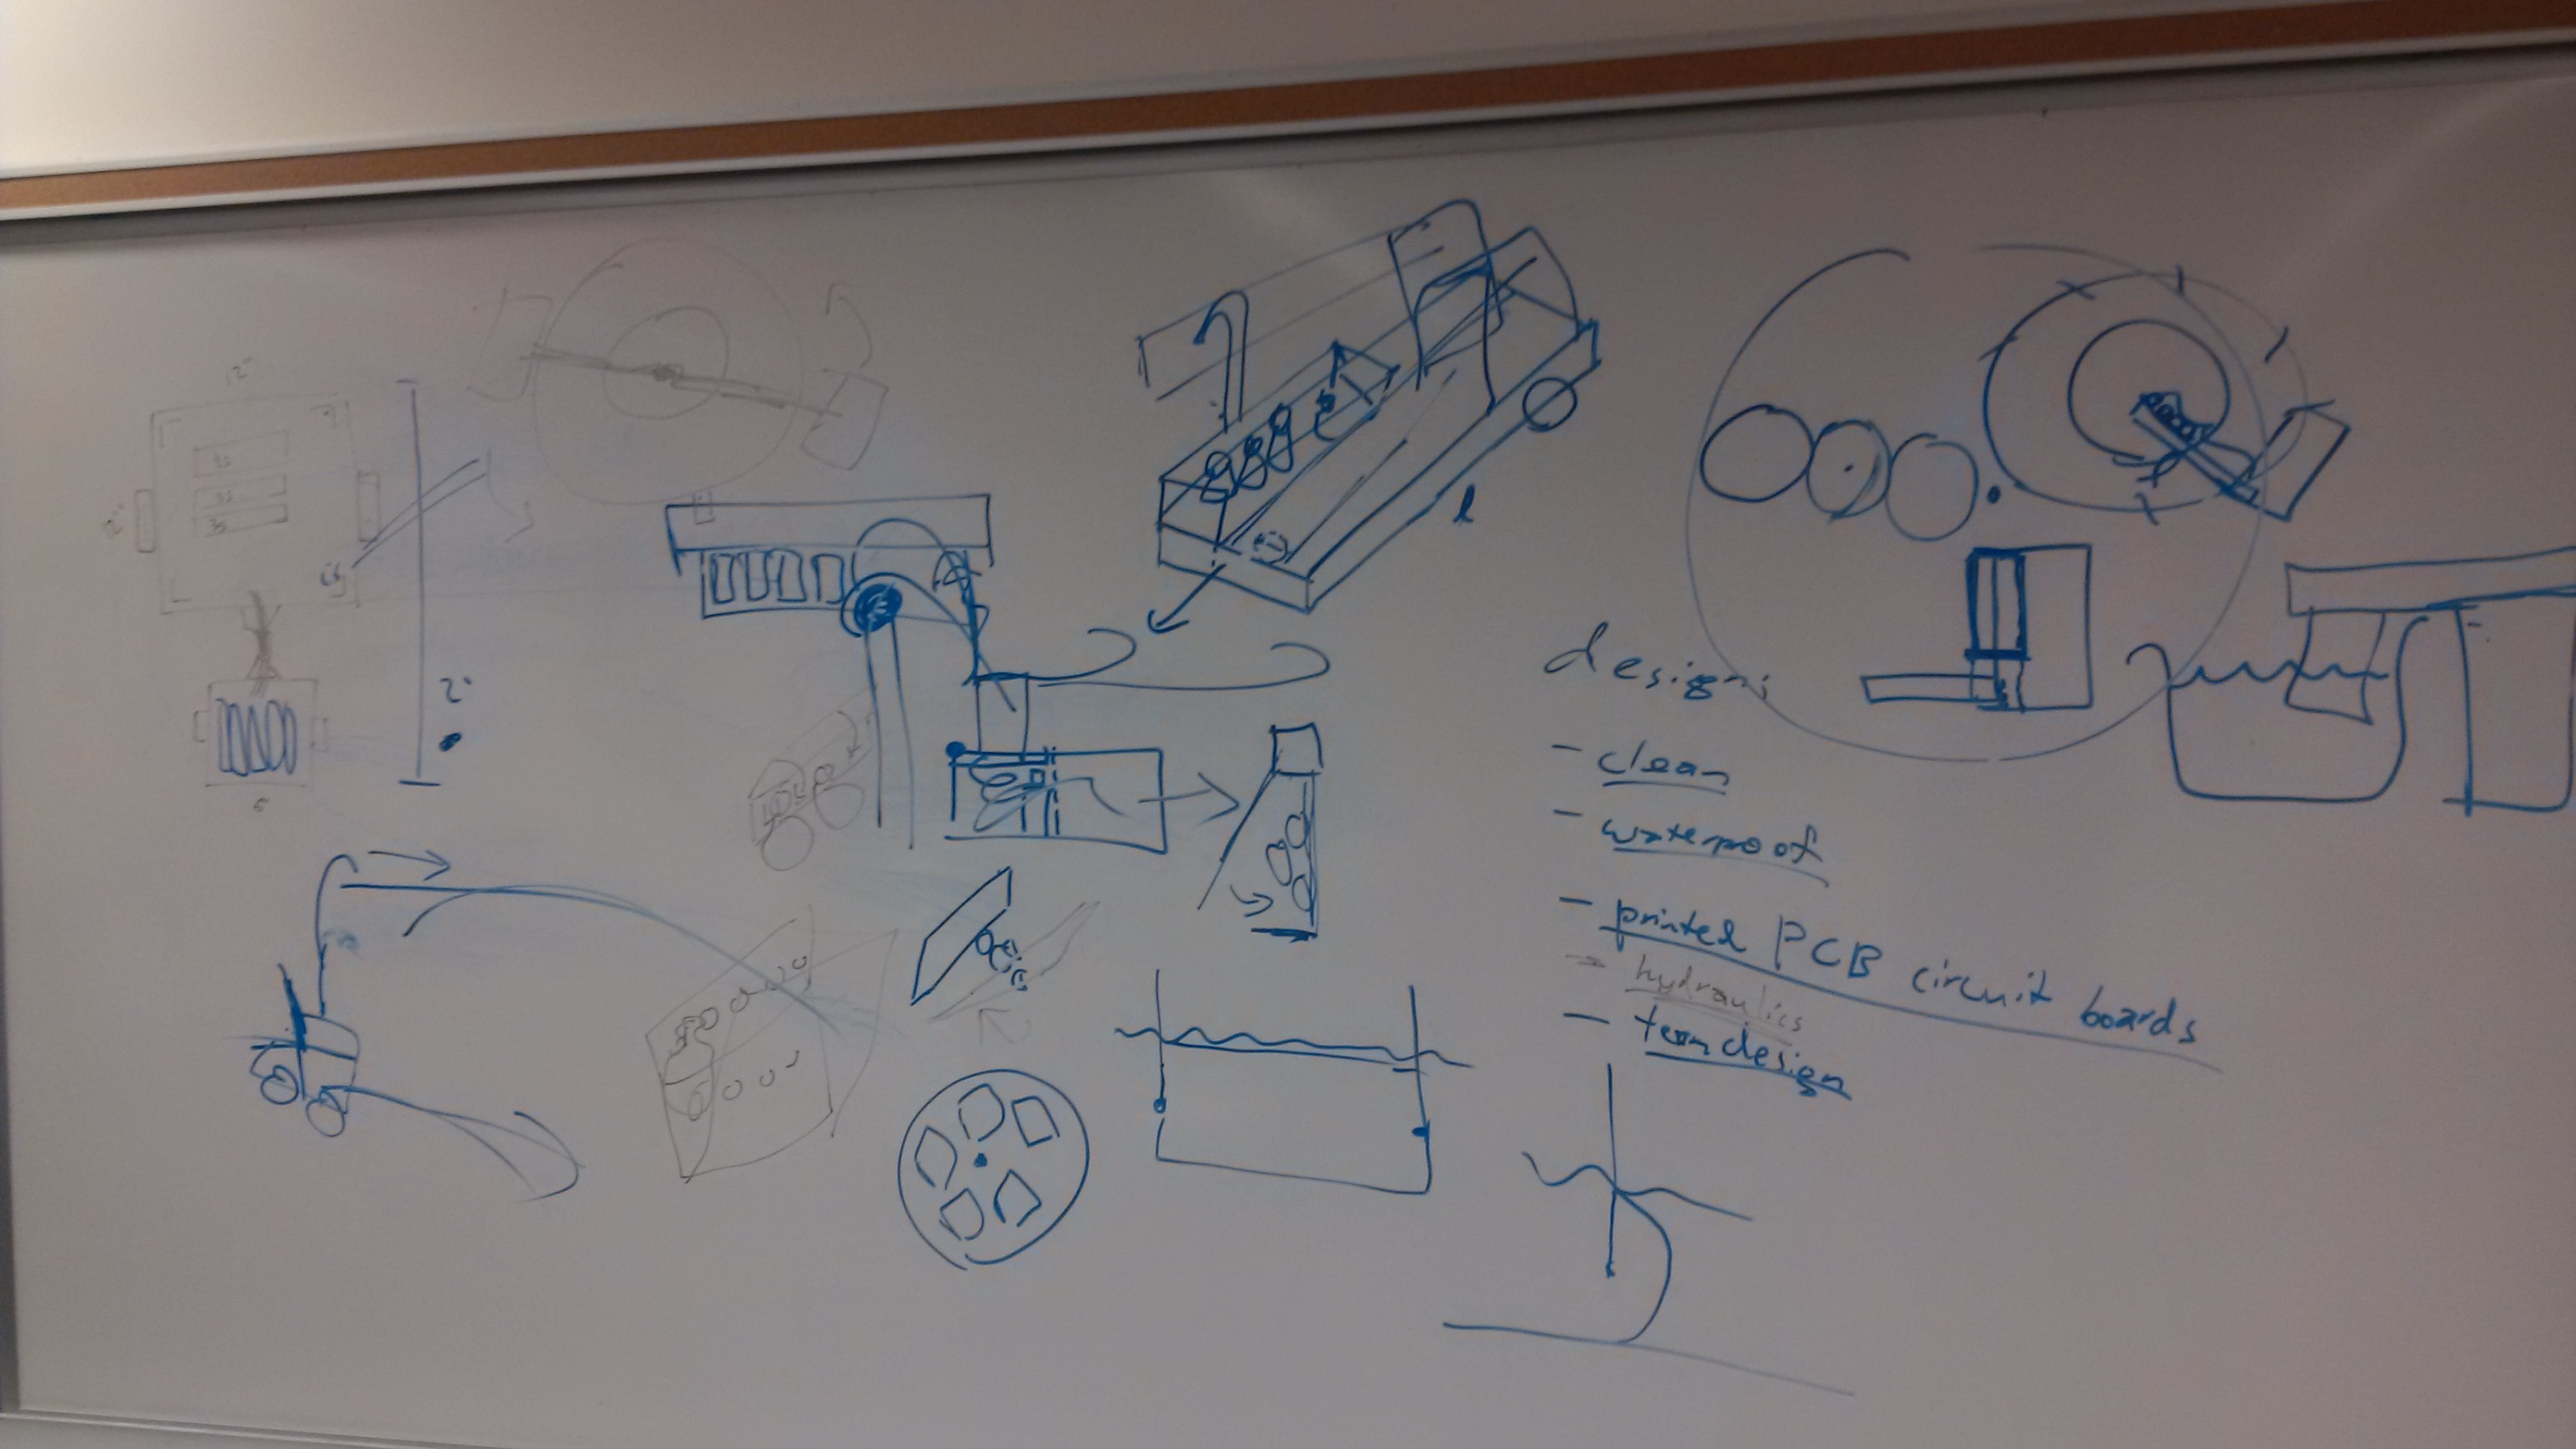 12"
2'
5
l
design:
- clean
- waterproof
- printed PCB circuit boards
- hydraulics
- team design